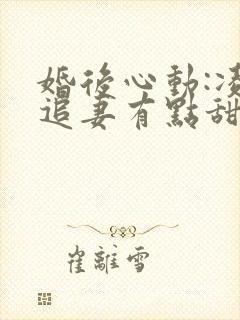 婚後心動:凌
追妻有點甜
崔離雪